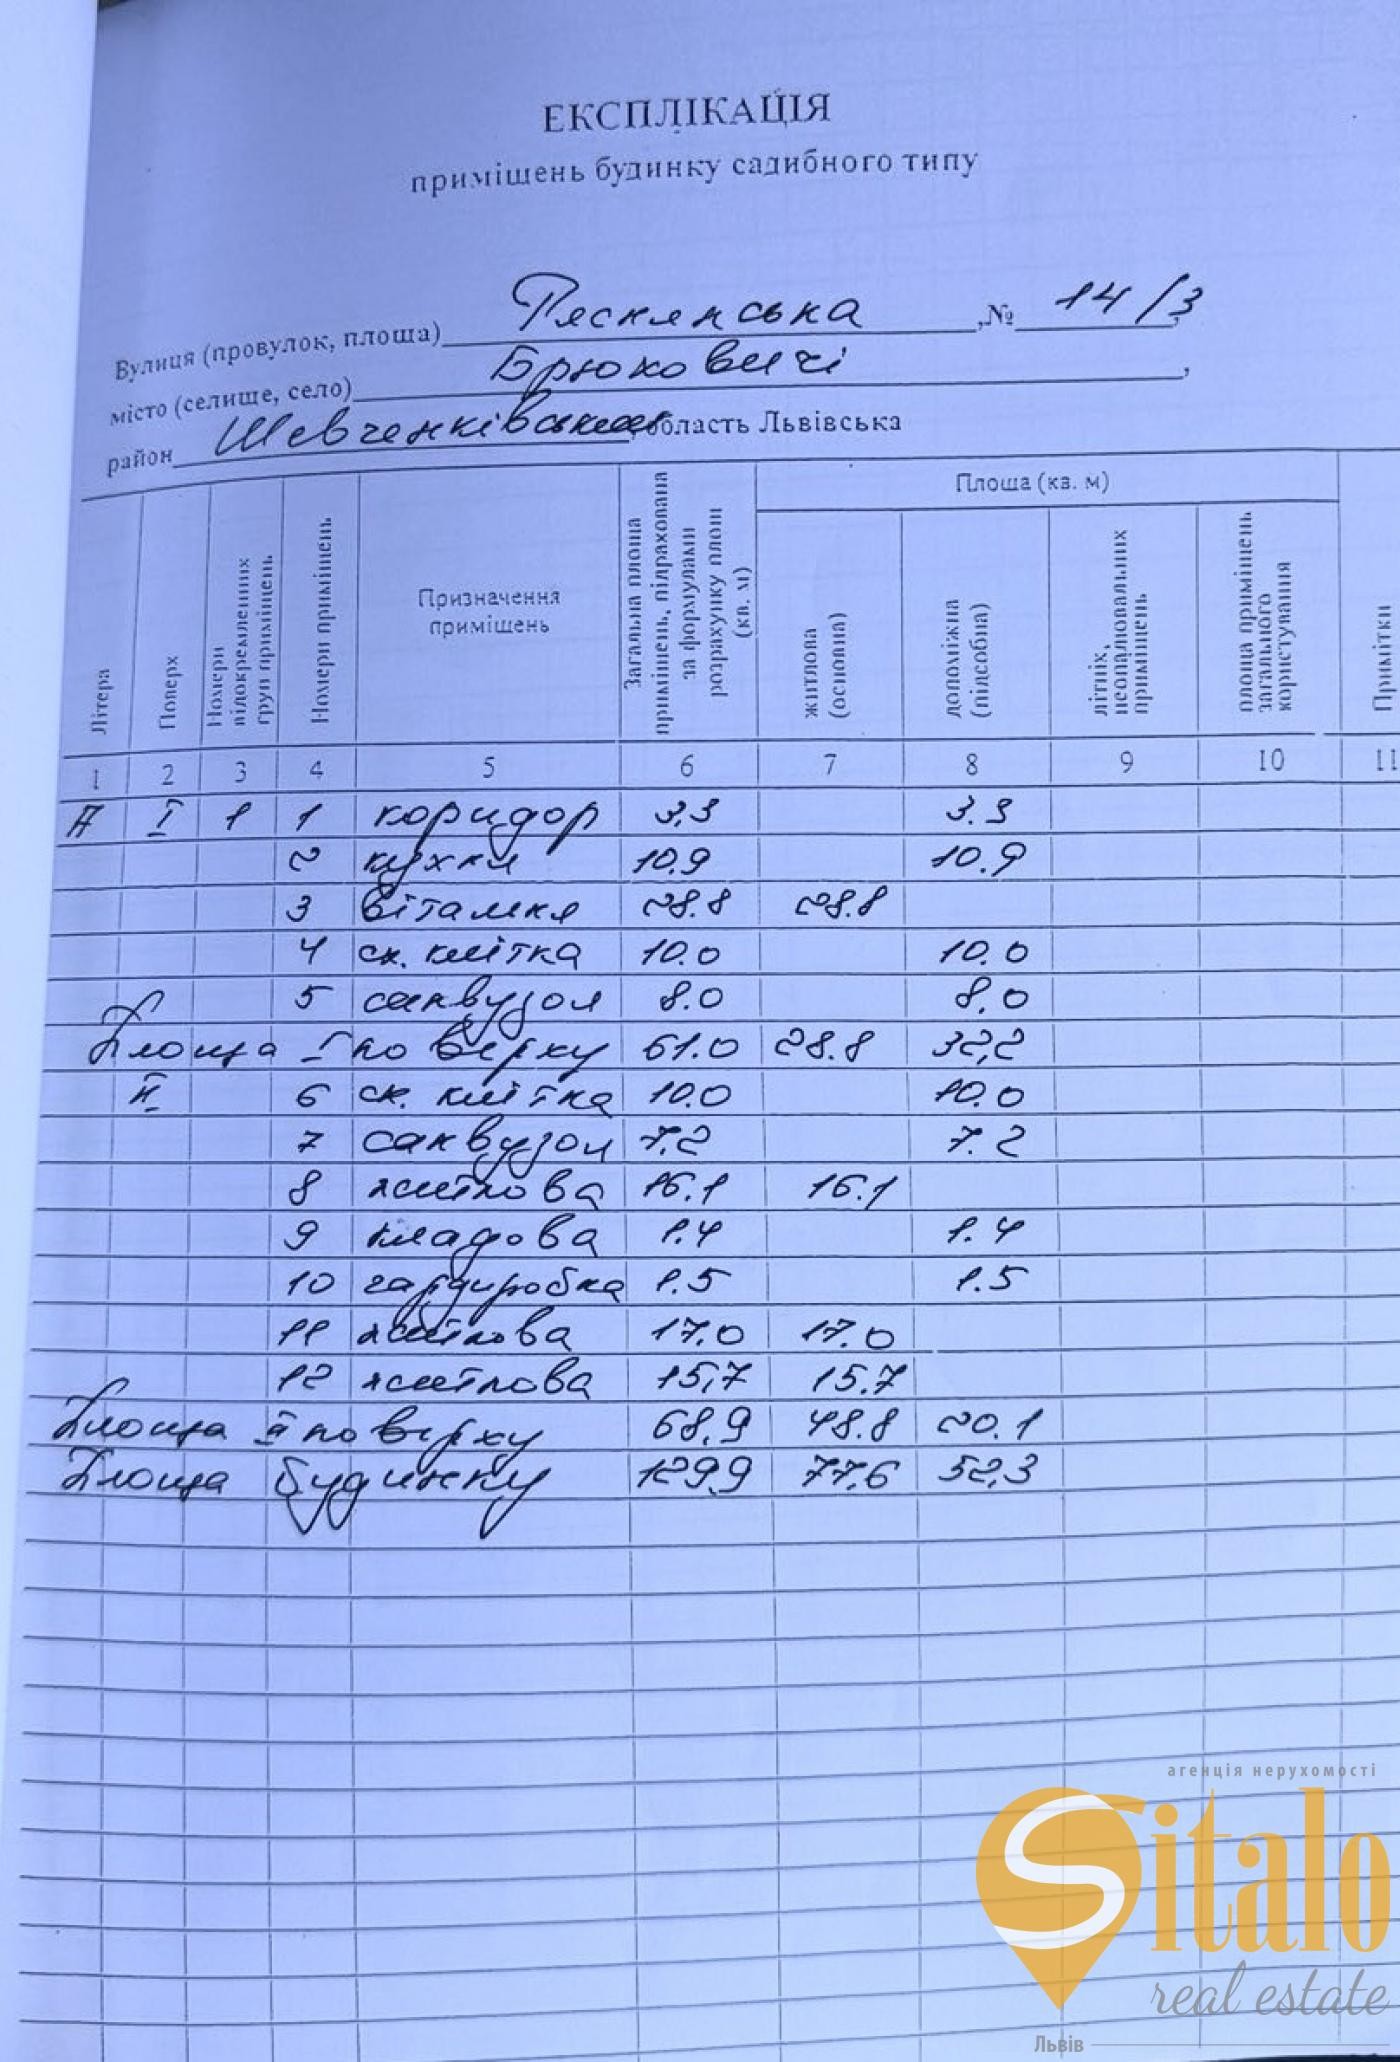 ЕКСПЛІКАЦІЯ
приміщень будинку садибного типу
Вулиця (провулок, площа) Ряснянська, № 14/3
місто (селище, село) Брюховичі,
район Шевченківський, область Львівська
Літера Поверх Номери відокремлених груп приміщень Номери приміщень Призначення приміщень Загальна площа приміщень, підрахована за формулами розрахунку площ (кв. м) Площа (кв. м) житлова (основна) допоміжна (підсобна) літніх, неопалювальних приміщень площа приміщень загального користування Примітки
1 2 3 4 5 6 7 8 9 10 11
А I 1 1 коридор 3,3 3.3
2 кухня 10.9 10.9
3 вітальня 28.8 28.8
4 сх. клітка 10.0 10.0
5 санвузол 8.0 8,0
Площа I поверху 61.0 28.8 32,2
II 6 сх. клітка 10.0 10.0
7 санвузол 7,2 7.2
8 житлова 16.1 16.1
9 кладова 1.4 1.4
10 гардиробна 1.5 1.5
11 житлова 17.0 17.0
12 житлова 15,7 15.7
Площа II поверху 68,9 48.8 20.1
Площа будинку 129,9 77.6 52,3
агенція нерухомості
Sitalo
real estate
Львів